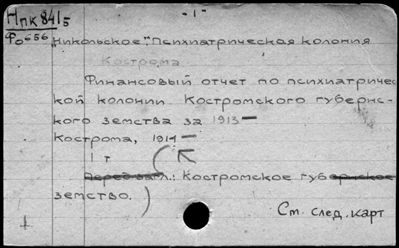 Нпк 841 5
- 1 -
Фо-656 Никольское. Психиатрическая колония
Кострома
Финансовый отчет по психиатричес
кой колонии Костромского губернс-
кого земства за 1913 —
Кострома, 1914 —
1 т
Перед загл.: Костромское губернское
земство.)
См. след. карт